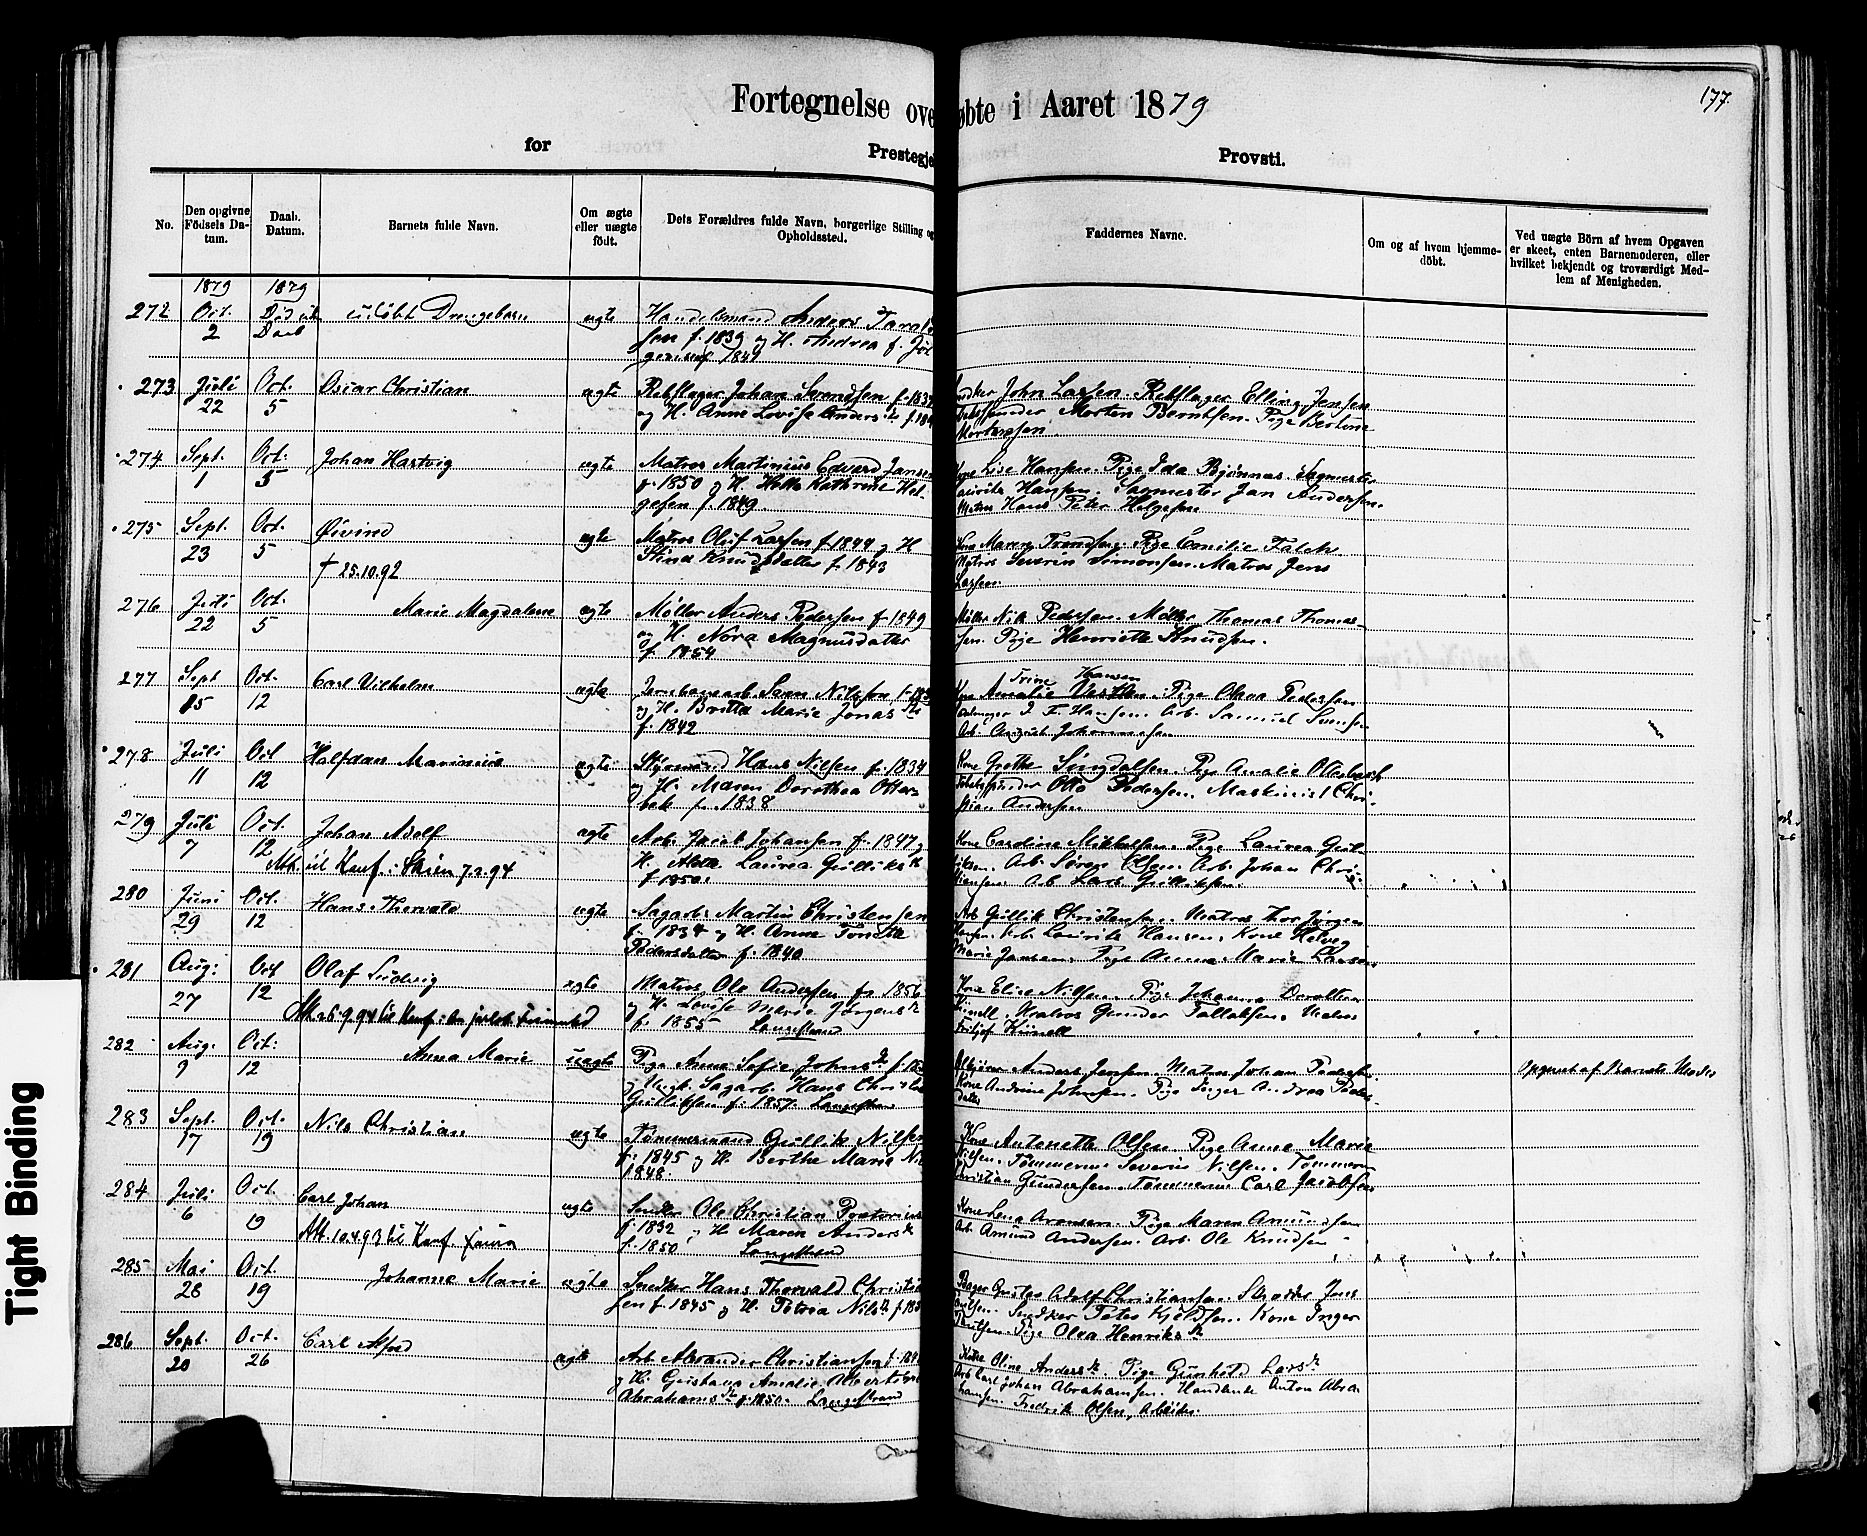 177.
Fortegnelse ove øbte i Aaret 1879
for Prestegje Provsti.
No.
Den opgivne Födsels Datum.
Daab. Datum.
Barnets fulde Navn.
Om ægte eller uægte födt.
Dets Forældres fulde Navn, borgerlige Stilling og Opholdssted.
Faddernes Navne.
Om og af hvem hjemmedöbt.
Ved uægte Börn af hvem Opgaven er skeet, enten Barnemoderen, eller hvilket bekjendt og troværdigt Medlem af Menigheden.
1879 1879
272 Oct. 2 Død ut Daab udöbt Drengebarn ægte Handelsmand Anders Taralds
sen f. 1839 og H. Andrea f. Jör
gensen 1849
273 Juli 22 Oct. 5 Oscar Christian ægte Rebslager Johan Svendsen f.
og H. Anne Lovise Anders Dr. f.
John Larsen. Rebslager Elling Jensen
Morten Berntsen. Pige Bertine
Mortensen.
274 Sept. 1 Oct. 5 Johan Hartvig ægte Matros Martinius Edvard Jansen
f. 1850 og H. Helle Kathrine Hel
gesen f. 1849.
Lise Hansen. Pige Ida Bjønnæs. Sagmester
Laurits Hansen. Sagmester Jan Andersen.
Matros Hans Peter Helgesen
275 Sept. 23 Oct. 5 Øivind ægte Matros Oluf Larsen f. 1844 og H
Stina Knudsdatter f. 1843
† 25.10.92
Maren Trondsen. Pige Emilie Falck
Matros Severin Simonsen. Matros Jens
Larsen.
276 Juli 22 Oct. 5 Marie Magdalene ægte Møller Anders Pedersen f. 1849
og H. Nora Magnusdatter
f. 1854
Møller Nils Pedersen. Møller Thomas Thomas-
sen. Pige Henriette Knudsen.
277 Sept 15 Oct. 12 Carl Vilhelm ægte Jernbanearb. Sven Nilsson f.
og H. Britta Marie Jonas Dr
f. 1842
Trine Hansen
Amalie . Pige Olava Pedersen
J. F. Hansen. Arb. Samuel Svensen
Arb. August Johannesen
278 Juli 11 Oct 12 Halfdan Marinius ægte Styrmand Hans Nilsen f. 1834
og H. Maren Dorothea Otter
bek f. 1838
Kone Grethe Songdalsen. Pige Amalie Otterbech
Otto Pedersen. Maskinist Chri-
stian Andersen
279 Juli 7 Oct. 12 Johan Adolf ægte Arb. Jacob Johansen f. 1847 og
H. Aletta Laurea Gulliks Dr
f. 1850.
Att. til Konf. i Skien 7.2.94
Kone Caroline Mikkelsen. Pige Laurea Gul-
liksen. Arb. Søren Olsen. Arb. Johan Chri-
stiansen. Arb Lars Gulliksen.
280 Juni 29 Oct. 12 Hans Thorvald ægte Sagarb. Martin Christensen
f. 1834 og H. Anne Tonette
Pedersdatter f. 1840
Arb Gullik Christensen. Matros Thor Jørgen
Hansen. Arb. Laurits Hansen. Kone Helvig
Marie Jansen. Pige Anna Marie Larsen
281 Aug: 27 Oct 12 Olaf Ludvig ægte Matros Ole Andersen f. 1856
og H. Lovise Marie Jørgens Dr
f. 1855 Langestrand
Kone Elise Nilsen. Pige Johanna Dorothea
Kinell. Matros Gunder Tallaksen. Matros
Fritjof Kinell
282 Aug: 9 Oct: 12 Anna Marie uægte Pige Anne Sofie Johns Dr f.
og Ungk. Sagarb. Hans Christian
Gulliksen f. 1857. Langestrand
Anders Jensen. Matros Johan Pedersen
Kone Andrine Johnsen. Pige Inger Andrea Peders-
datter
Opgivet af Barnets Moder
283 Sept. 17 Oct. 19 Nils Christian ægte Tømmermand Gullik Nilsen
f. 1845 og H. Berthe Marie
1848.
Kone Antonette Olsen. Pige Anne Marie
Nilsen. Tømmerm. Severin Nilsen. Tømmerm
Christian Gundersen. Tømmerm Carl Jacobsen
284 Juli 6 Oct. 19 Carl Johan ægte Ole Christian Pretorius
f. 1832 og H. Maren Anders Dr
f. 1850 Langestrand
Att. 10.4.93 til Konf.
Kone Lena Arensen. Pige Maren Amundsen
Arb. Amund Andersen. Arb. Ole Knudsen
285 Mai 28 Oct. 19 Johanne Marie ægte Snedker Hans Thorvald Christian
sen f. 1845 og H. Petrea Nils Dr f.
Bager Gustav Adolf Christiansen. Skredder Jens
Nilsen. Snedker Peter Kjeldsen. Kone Inger
Knutsen. Pige Olea Henriks Dr
286 Sept. 20 Oct. 26 Carl Alfred ægte Arb. Alexander Christiansen f.
og H. Gustava Amalie Albertine
Abrahams Dr f. 1850. Langestrand
Kone Oline Anders Dr. Pige Gunhild Lars Dr
Arb Carl Johan Abrahamsen. Handlende Anton Abra-
hamsen. Fredrik Olsen, Arbeider.
Tight Binding